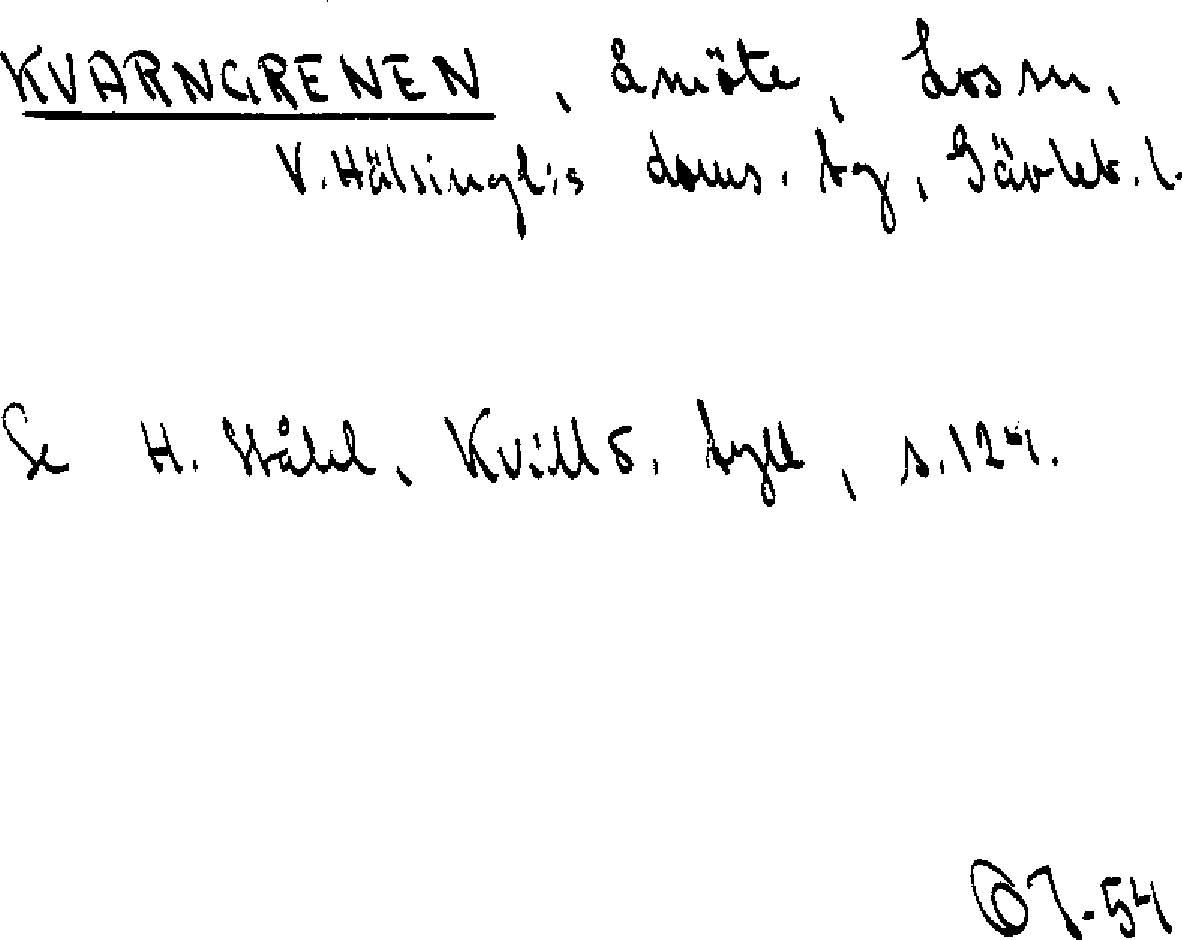 KVARNGRENEN, åmöte, Los sn,
V. Hälsingl:s doms. tg, Gävleb. l.
Se H. Ståhl, Kvill o. tyll, s. 124.